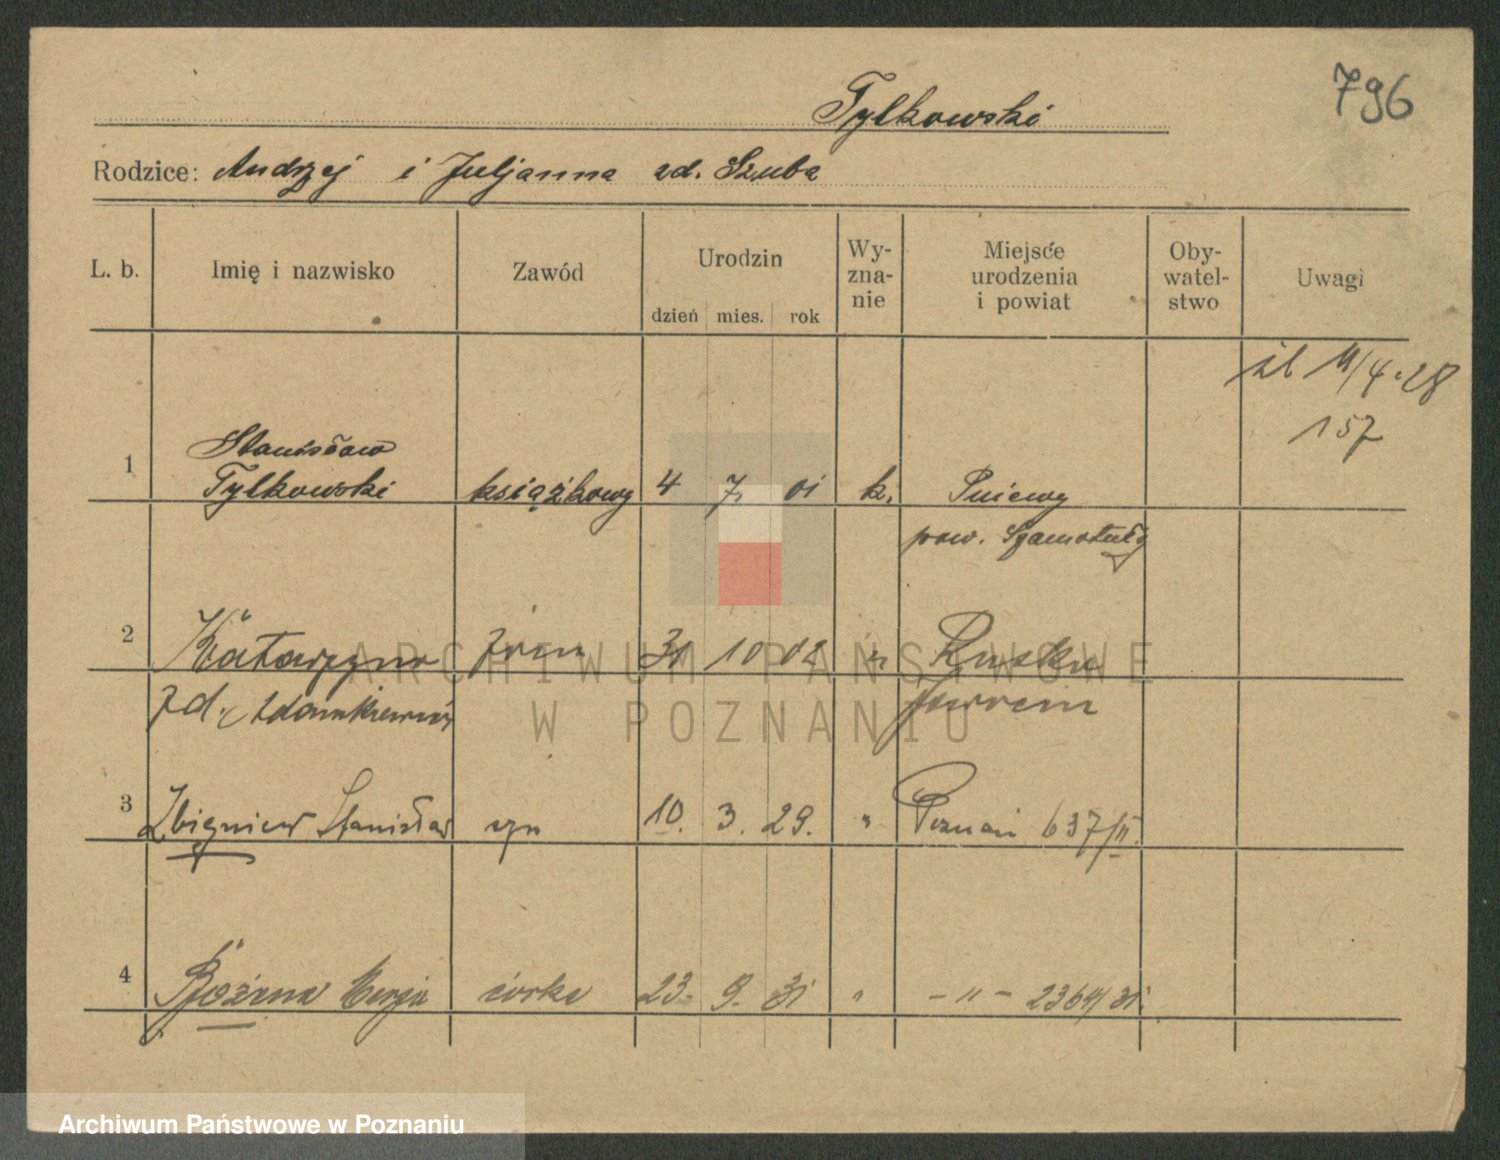 796
Tylkowski
Rodzice: Andrzej i Juljanna zd. Szuba
L. b. Imię i nazwisko Zawód Urodzin dzień mies. rok Wy-zna-nie Miejsce urodzenia i powiat Oby-watel-stwo Uwagi
śl 11/4.28
157
1 Stanisław
Tylkowski książkowy 4 7. 01 k. Pniewy
pow. Szamotuły
2 Katarzyna żona 31 10 02 " Rusko
zd. Adamkiewicz
3 Zbigniew Stanisław syn 10. 3. 29. " Poznań 637/II.
4 Bożena Marja córka 23. 9. 31 " - " - 2364/31.
ARCHIWUM PAŃSTWOWE
W POZNANIU
Archiwum Państwowe w Poznaniu